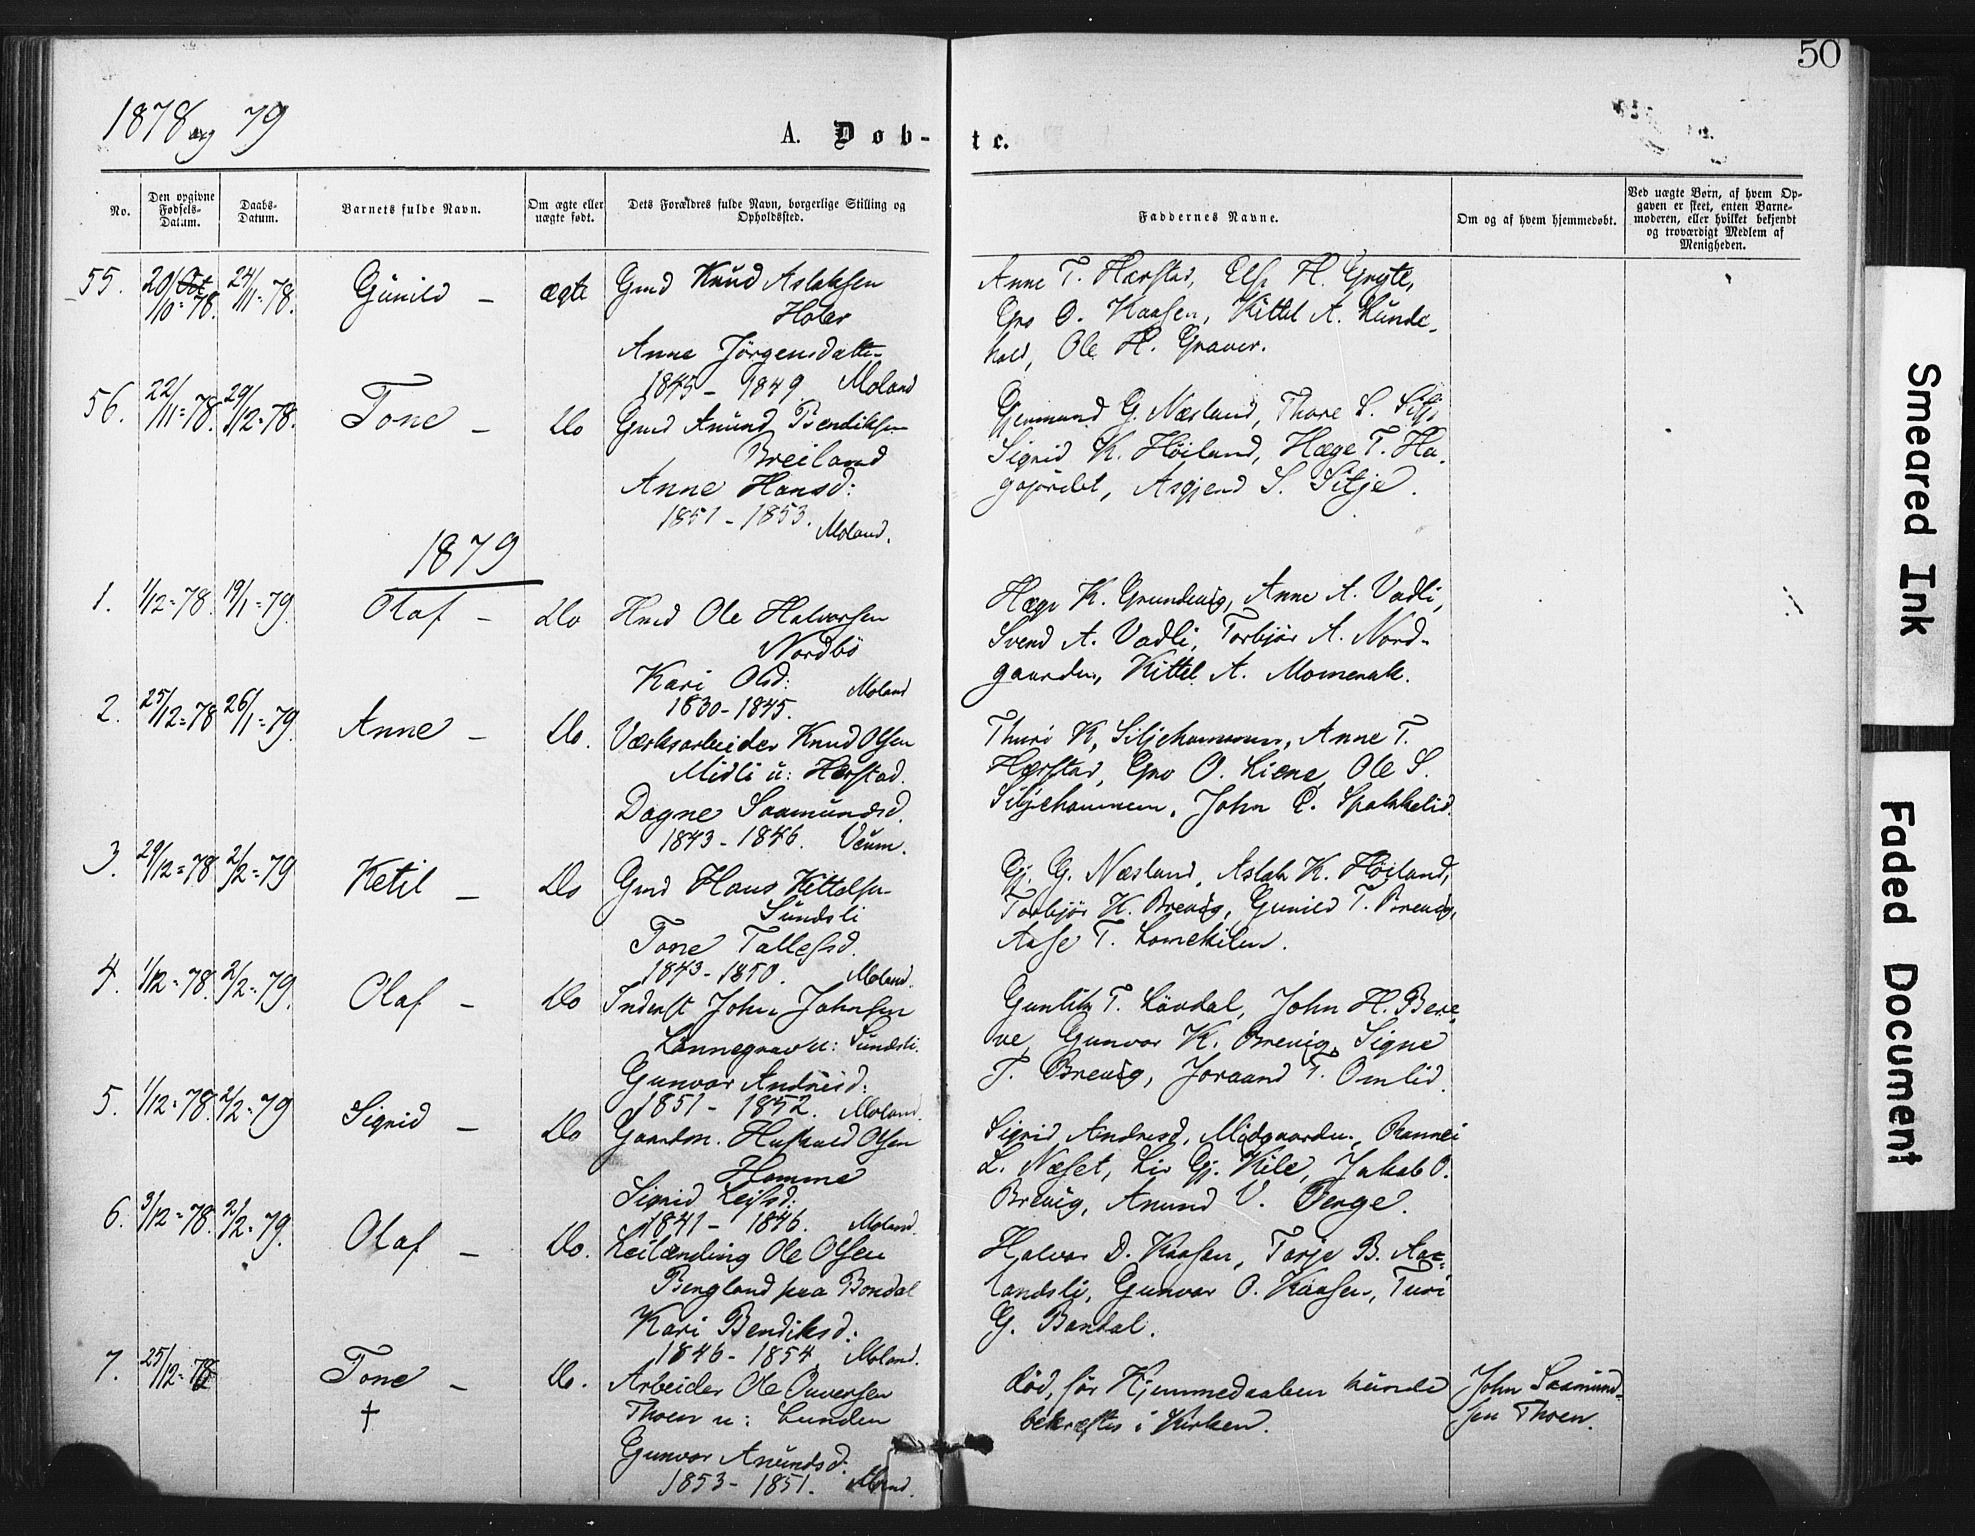 50
1878 og 79
A. Døb-
te.
No.
Den opgivne Fødsels-Datum.
Daabs-Datum.
Barnets fulde Navn.
Om ægte eller uægte født.
Dets Forældres fulde Navn, borgerlige Stilling og Opholdssted.
Faddernes Navne.
Om og af hvem hjemmedøbt.
Ved uægte Børn, af hvem Opgaven er skeet, enten Barnemoderen, eller hvilket bekjendt og troværdigt Medlem af Menigheden.
55. 20/10=78. 24/11=78. Gunild – ægte Gmd Knud Aslaksen
Anne T. Hærstad, H. Gryte,
Gro O. Kaasen, Kittel A. Lunde-
Anne Jørgensdatter
hold, Ole H. Graver.
1845 – 1849 Moland
56. 22/11=78. 29/12=78. Tone – Do Gmd Anund Bendiksen
Breiland
Gjermund G. Næsland, Thore S. Silje
Sigrid K. Høiland, Hæge T. Ha-
Anne Hansd:
gajordet, Asgjerd S. Silje.
1851 – 1853. Moland.
1879
1. 1/12=78. 19/1=79. Olaf – Do Hmd Ole Halvorsen
Nordbø
Hæge K. Grundevig, Anne A. Vadli,
Svend A. Vadli, Torbjør A. Nord-
Kari Olsd:
gaarden, Kittel A. Momerak.
1830 – 1845. Moland
2. 25/12=78 26/1=79. Anne – Do. Værksarbeider Knud Olsen
Midli u: Hærstad.
Thuri K. Siljehammeren, Anne T.
Hærstad, Gro O. Liene, Ole S.
Dagne Saamundsd.
Siljehammeren, John E. Spokkelid.
1843 – 1846. Veum.
3. 29/12=78 2/2=79 Ketil – Do Gmd Hans Kittelsen
Sundsli
Gj. G. Næsland, Aslak K. Høiland,
Torbjør K. Brevig, Gunild T. Brevig,
Tone Tallefsd.
Aase T. Lomekilen.
1843 – 1850. Moland.
4. 1/12=78. 2/2=79. Olaf – Do Inderst John Johnsen
Lonnegrav u: Sundsli.
Gunlik T. Løvdal, John H. Bere-
ve, Gunvor K. Brevig, Signe
Gunvor Andresd:
T. Brevig, Joraand T. Omlid.
1851 – 1852. Moland.
5. 1/12=78. 2/2=79 Sigrid – Do Gaardm. Huskuld Olsen
Homme
Sigrid Andresd. Midgaarden, Rannei
L. Næset, Liv Gj. Kile, Jakob O.
Sigrid Leifsd:
Brevig, Anund V. Berge.
1841 – 1846. Moland.
6. 3/12=78. 2/2=79. Olaf – Do. Leilænding Ole Olsen
Bergland paa Bondal
Halvor D. Kaasen, Tarje B. Aa=
landsli, Gunvor O. Kaasen, Turi
Kari Bendiksd:
G. Bondal.
1846 – 1854. Moland.
7. 25/12=78 Tone – Do. Arbeider Ole Ouversen
†
Thoen u: Lunden
død, før Hjemmedaaben kunde
bekræftes i Kirken.
John Saamund-
sen Thoen.
Gunvor Anundsd.
1853 – 1851.
Smeared Ink
Faded Document